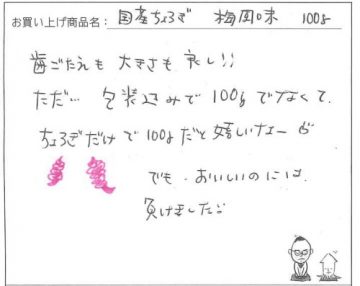 お買い上げ商品名： 国産ちょろぎ 梅園味 100g
歯ごたえも 大きさも 良し!!
ただ… 包装込みで100gでなくて、
ちょろぎだけで100gだと嬉しいなー が
でも、おいしいのには
負けました